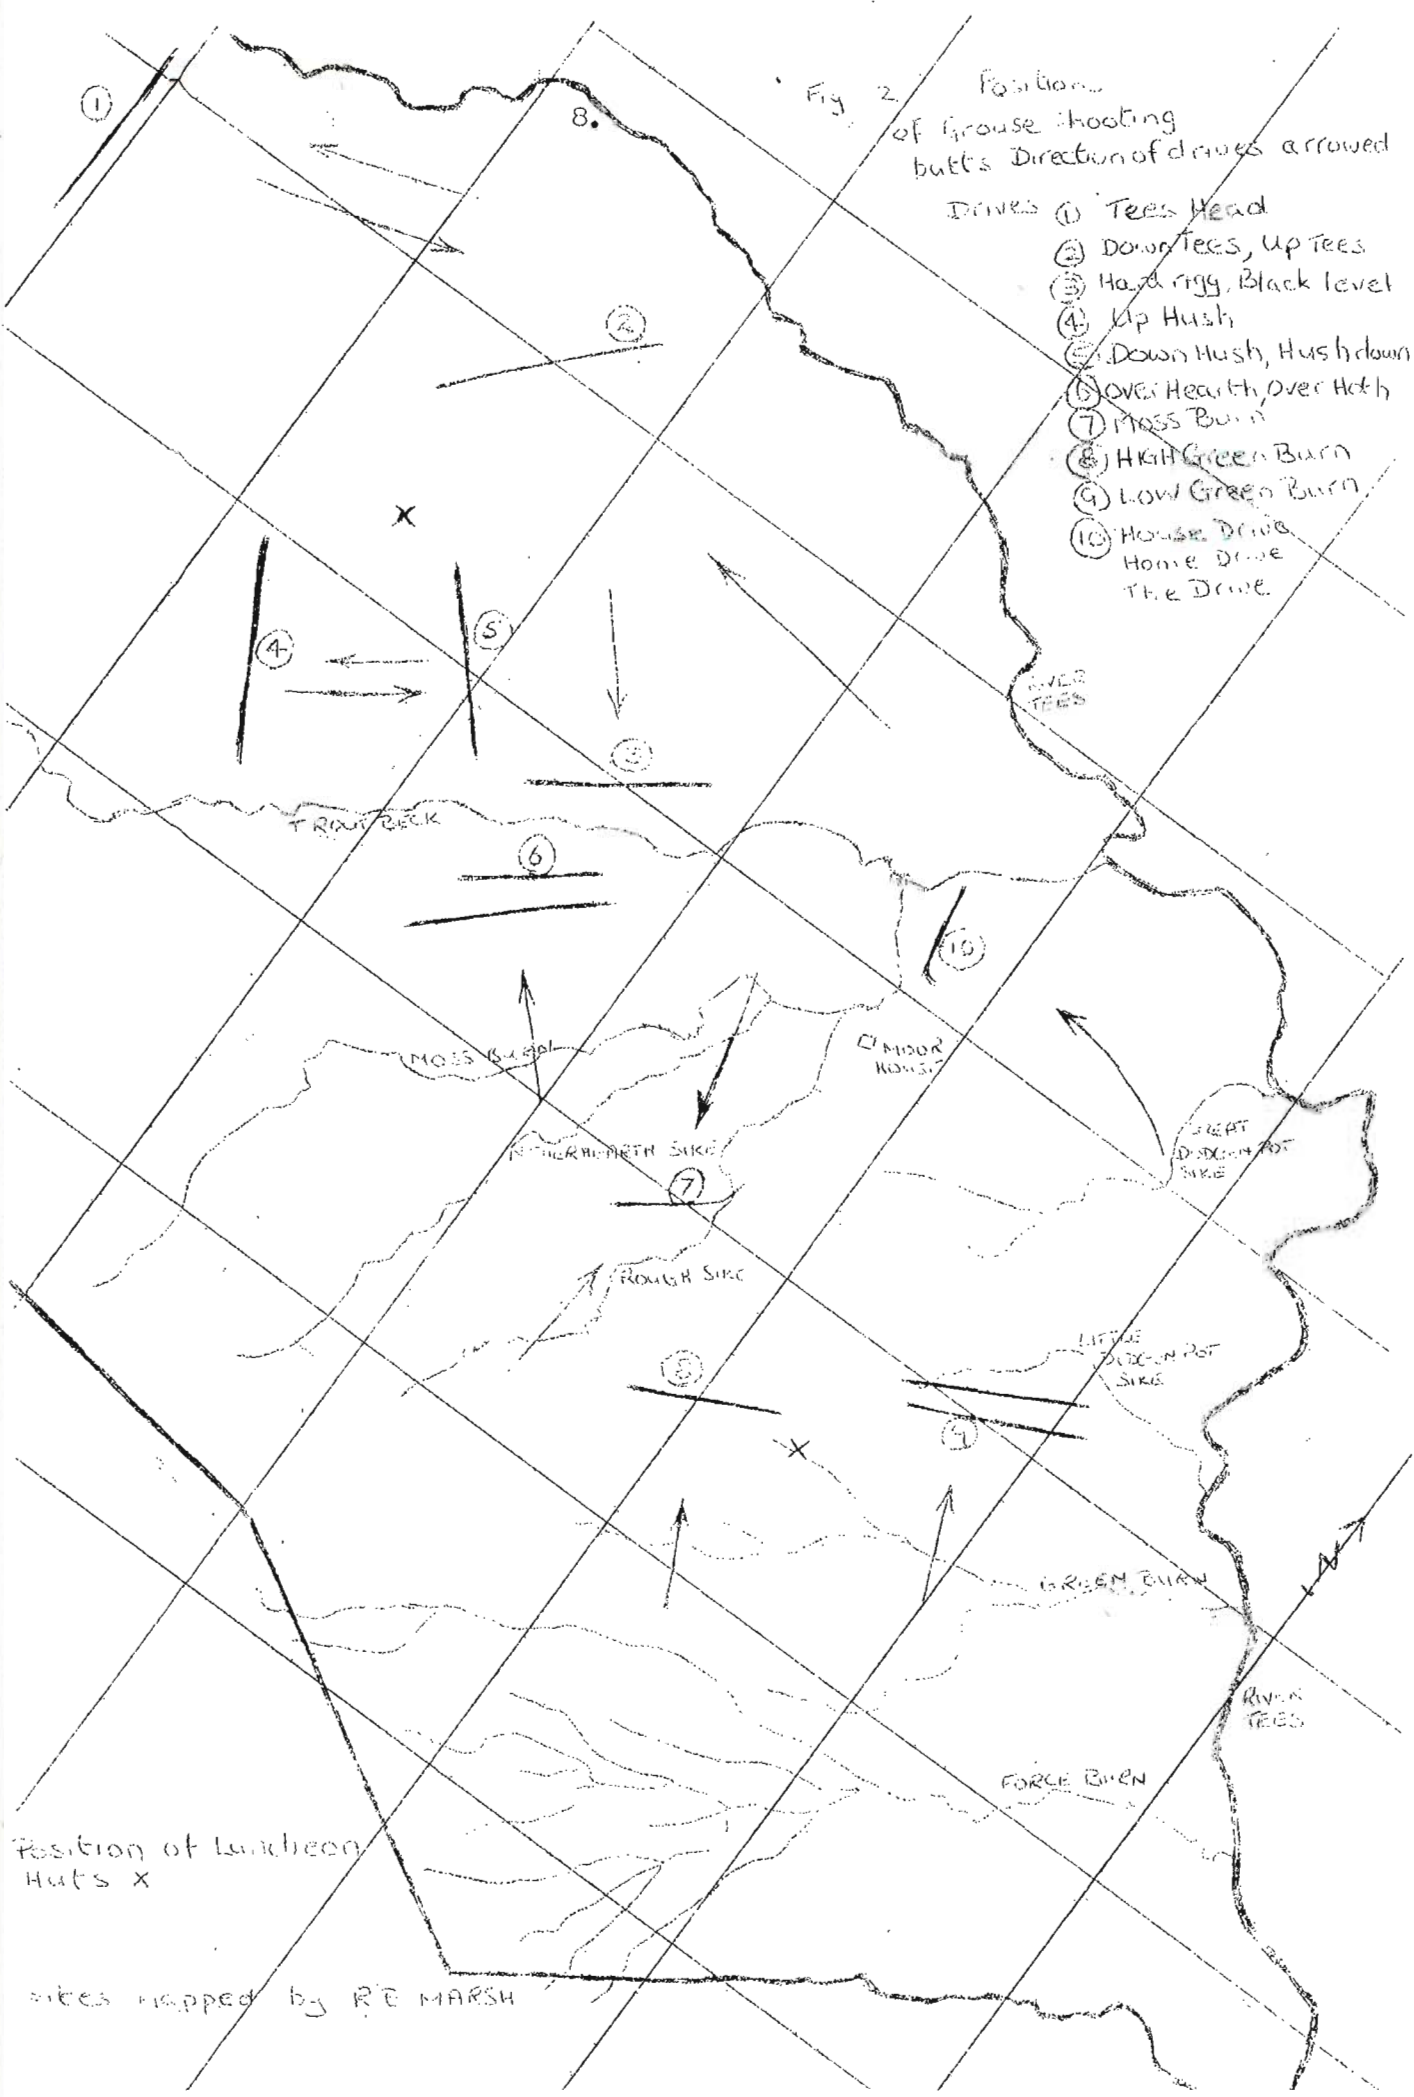 Fig 2 Positions
of Grouse Shooting
butts Direction of drives arrowed
Drives ① Tees Head
② Down Tees, Up Tees
③ Hard rigg, Black level
④ Up Hush
⑤ Down Hush, Hush down
⑥ Over Hearth, Over Hoth
⑦ Moss Burn
⑧ HIGH Green Burn
⑨ LOW Green Burn
⑩ House Drive
Home Drive
The Drive
①
8.
②
④
⑤
③
RIVER
TEES
TROUT BECK
⑥
⑩
MOSS BURN
MOOR
HOUSE
NETHERHEARTH SIKE
GREAT
DODGEN POT
SIKE
⑦
ROUGH SIKE
LITTLE
DODGEN POT
SIKE
⑧
X
X
⑨
N
GREEN BURN
RIVER
TEES
FORCE BURN
Position of Luncheon
Huts X
sikes mapped by R E MARSH